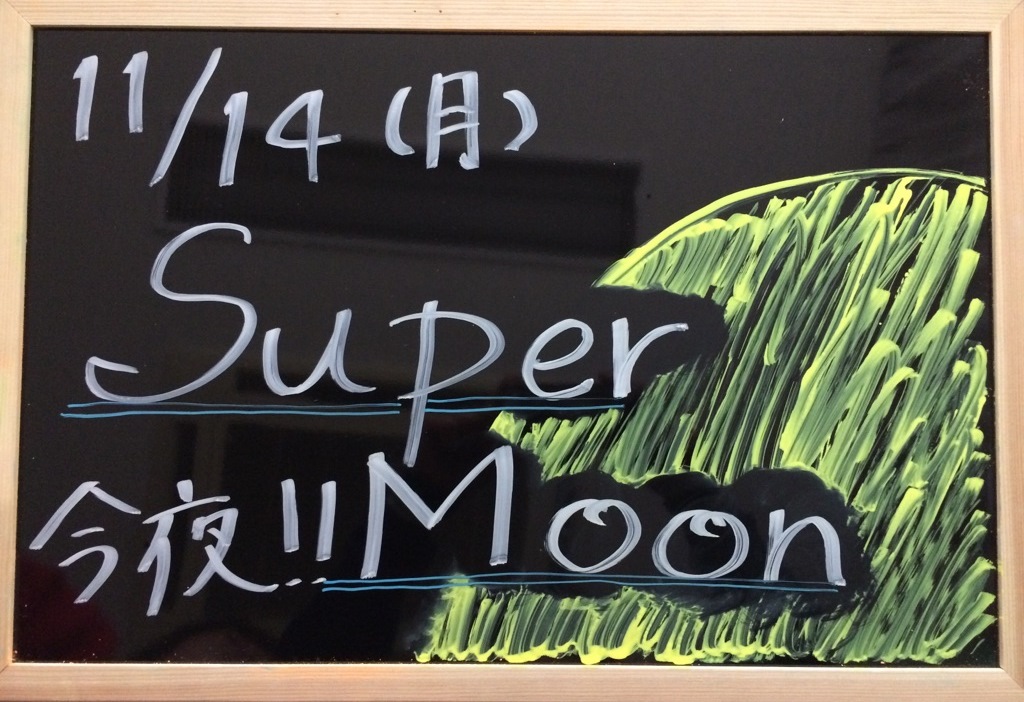 11/14(月)
Super
今夜!! Moon